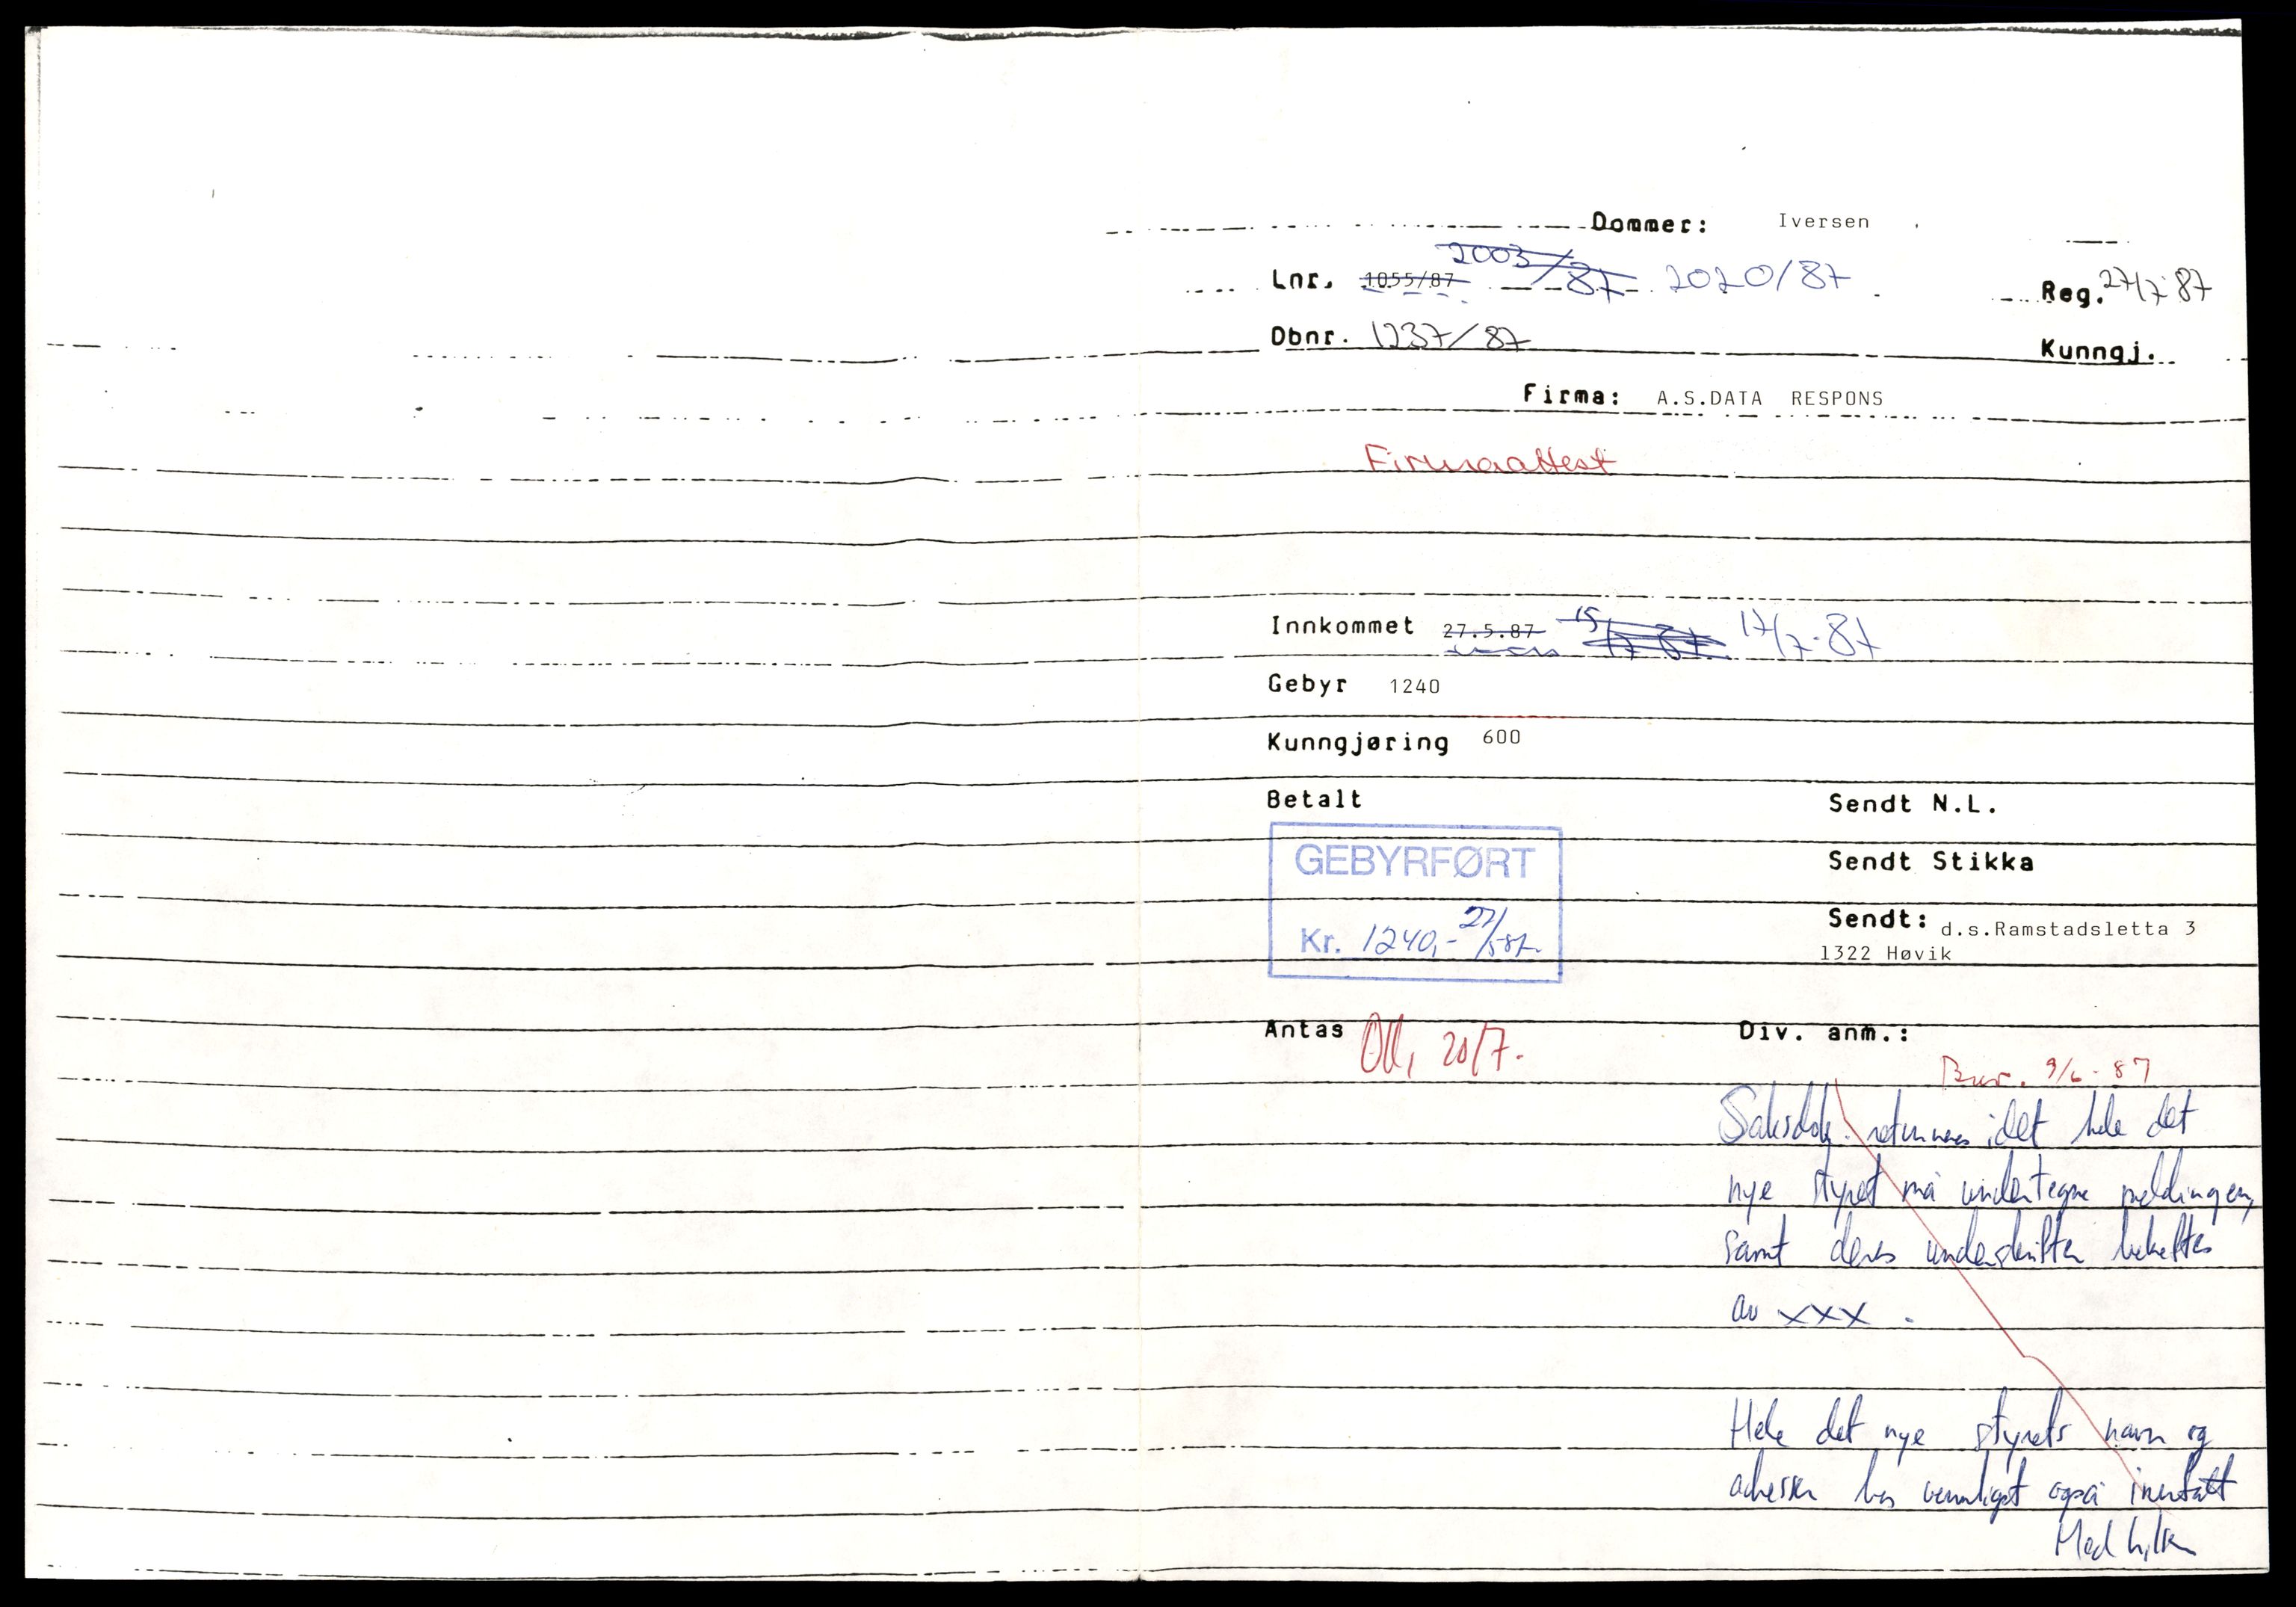 Dommer: Iversen
Lnr. 1055/87 2003/87 2020/87 Reg. 27/7 87
Dbnr. 1237/87 Kunngj.
Firma: A.S.DATA RESPONS
Firmaattest
Innkommet 27.5.87 15/7 87 17/7-87
Gebyr 1240
Kunngjøring 600
Betalt Sendt N.L.
GEBYRFØRT
Sendt Stikka
Kr. 1240,- 27/5-87.
Sendt: d.s.Ramstadsletta 3
1322 Høvik
Antas 20/7. Div. anm.:
9/6-87
Saksdok. returneres idet hele det
nye styret må undertegne meldingen,
samt deres underskrifter bekreftes
av xxx.
Hele det nye styrets navn og
adresser bes vennligst også inntatt
Med hilsen